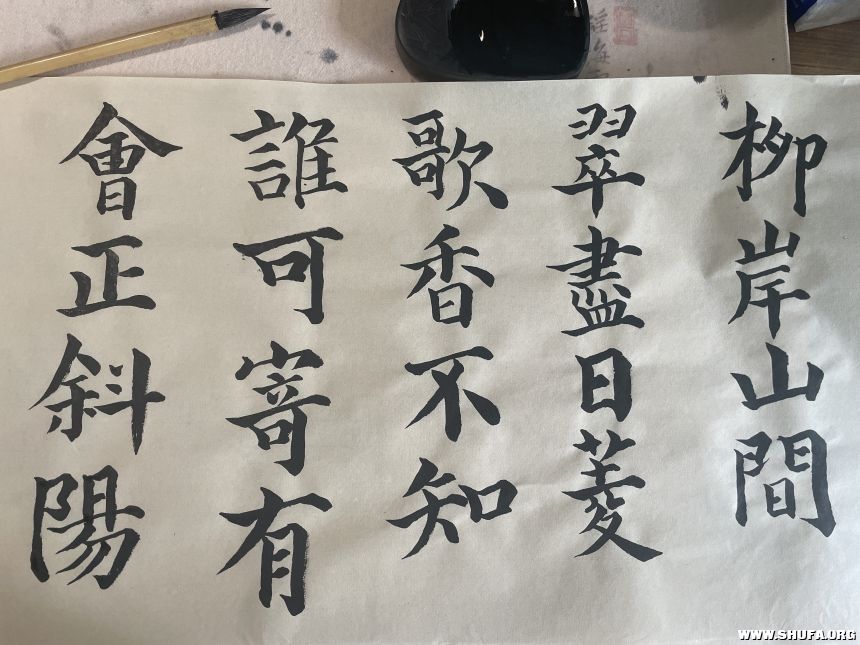 柳岸山間
翠盡日菱
歌香不知
誰可寄有
會正斜陽
WWW.SHUFA.ORG